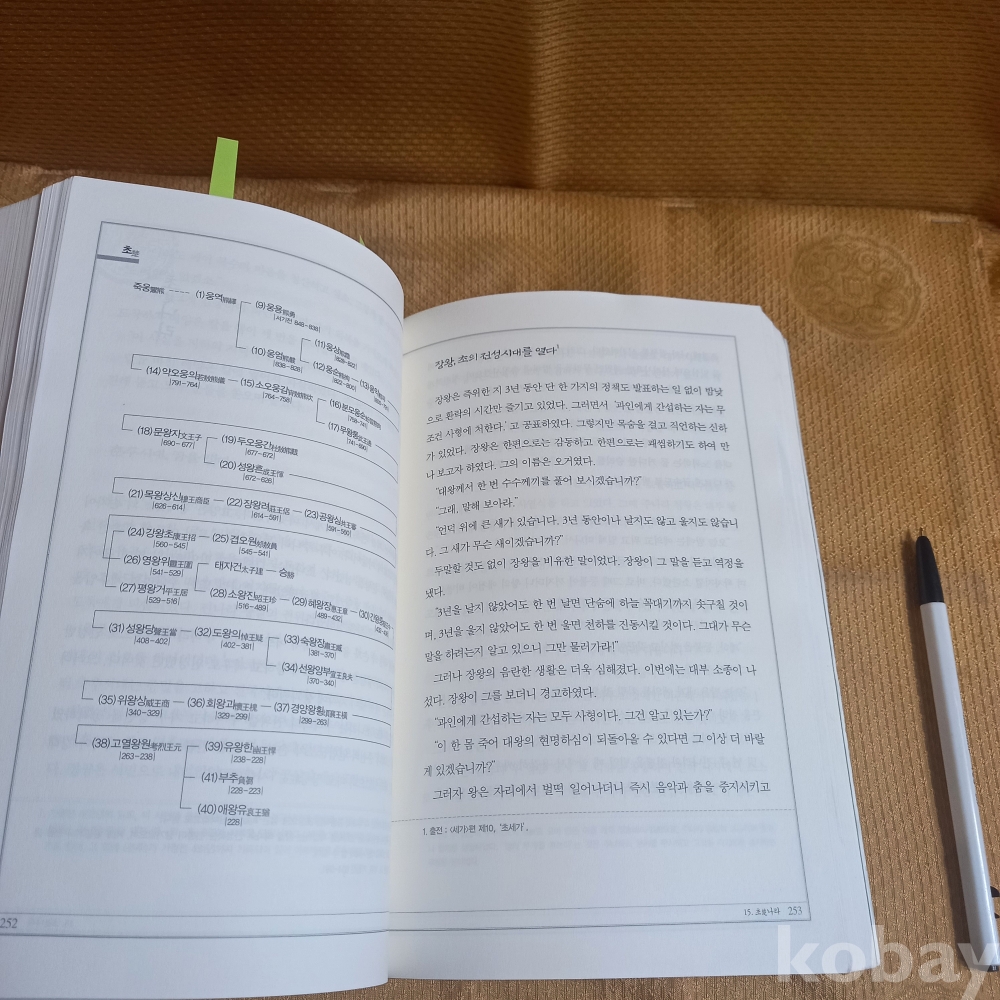 초楚
죽웅鬻熊 ---- (1) 웅역熊繹
(9) 웅용熊勇
|서기전 848~838|
(10) 웅엄熊嚴
|838~828|
(11) 웅상熊霜
|828~822|
(12) 웅순熊徇
|822~800|
(13) 웅악
(14) 약오웅의若敖熊儀
|791~764|
(15) 소오웅감霄敖熊坎
|764~758|
(16) 분모웅순蚡冒熊眴
|758~741|
(17) 무왕웅통武王通
|741~690|
(18) 문왕자文王子
|690~677|
(19) 두오웅간杜敖熊艱
|677~672|
(20) 성왕혼成王惲
|672~626|
(21) 목왕상신穆王商臣
|626~614|
(22) 장왕려莊王侶
|614~591|
(23) 공왕심共王審
|591~560|
(24) 강왕초康王招
|560~545|
(25) 겹오원郟敖員
|545~541|
(26) 영왕위靈王圍
|541~529|
태자건太子建 — 승勝
(27) 평왕거平王居
|529~516|
(28) 소왕진昭王珍
|516~489|
(29) 혜왕장惠王章
|489~432|
(30) 간왕중
(31) 성왕당聲王當
|408~402|
(32) 도왕의悼王疑
|402~381|
(33) 숙왕장肅王臧
|381~370|
(34) 선왕양부宣王良夫
|370~340|
(35) 위왕상威王商
|340~329|
(36) 회왕괴懷王槐
|329~299|
(37) 경양왕횡頃襄王橫
|299~263|
(38) 고열왕원考烈王元
|263~238|
(39) 유왕한幽王悍
|238~228|
(41) 부추負芻
|228~223|
(40) 애왕유哀王猶
|228|
252
장왕, 초의 전성시대를 열다¹
장왕은 즉위한 지 3년 동안 단 한 가지의 정책도 발표하는 일 없이 밤낮
으로 환락의 시간만 즐기고 있었다. 그러면서 '과인에게 간섭하는 자는 무
조건 사형에 처한다.'고 공표하였다. 그렇지만 목숨을 걸고 직언하는 신하
가 있었다. 장왕은 한편으로는 감동하고 한편으로는 괘씸하기도 하여 만
나 보고자 하였다. 그의 이름은 오거였다.
"대왕께서 한 번 수수께끼를 풀어 보시겠습니까?"
"그래, 말해 보아라."
"언덕 위에 큰 새가 있습니다. 3년 동안이나 날지도 않고 울지도 않습니
다. 그 새가 무슨 새이겠습니까?"
두말할 것도 없이 장왕을 비유한 말이었다. 장왕이 그 말을 듣고 역정을
냈다.
"3년을 날지 않았어도 한 번 날면 단숨에 하늘 꼭대기까지 솟구칠 것이
며, 3년을 울지 않았어도 한 번 울면 천하를 진동시킬 것이다. 그대가 무슨
말을 하려는지 알고 있으니 그만 물러가라!"
그러나 장왕의 음란한 생활은 더욱 심해졌다. 이번에는 대부 소종이 나
섰다. 장왕이 그를 보더니 경고하였다.
"과인에게 간섭하는 자는 모두 사형이다. 그건 알고 있는가?"
"이 한 몸 죽어 대왕의 현명하심이 되돌아올 수 있다면 그 이상 더 바랄
게 있겠습니까?"
그러자 왕은 자리에서 벌떡 일어나더니 즉시 음악과 춤을 중지시키고
1. 출전 : 〈세가〉편 제10, '초세가'.
15. 초楚나라 253
kobay